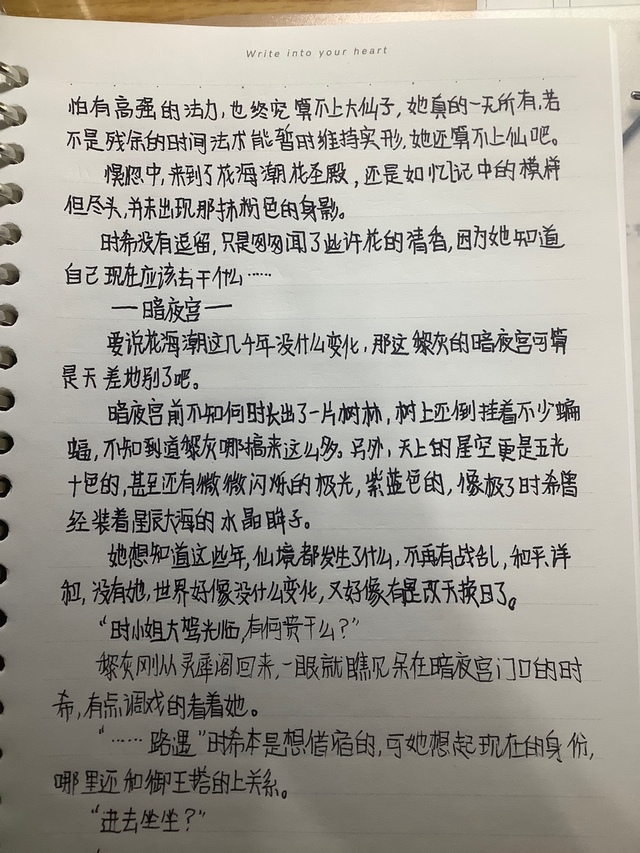 Write into your heart
怕有高强的法力,也终究算不上大仙子,她真的一无所有,若
不是残余的时间法术能暂时维持实形,她还算不上仙吧。
恍惚中,来到了花海潮花圣殿,还是如忆记中的模样
但尽头,并未出现那抹粉色的身影。
时希没有逗留,只是匆匆闻了些许花的清香,因为她知道
自己现在应该去干什么……
—暗夜宫—
要说花海潮这几千年没什么变化,那这黎灰的暗夜宫可算
是天差地别了吧。
暗夜宫前不知何时长出了一片树林,树上还倒挂着不少蝙
蝠,不知到道黎灰哪搞来这么多。另外,天上的星空更是五光
十色的,甚至还有微微闪烁的极光,紫蓝色的,像极了时希曾
经装着星辰大海的水晶眸子。
她想知道这些年,仙境都发生了什么,不再有战乱,和平详
和,没有她,世界好像没什么变化,又好像有是改天换日了。
“时小姐大驾光临,有何贵干么?”
黎灰刚从灵犀阁回来,一眼就瞧见呆在暗夜宫门口的时
希,有点调戏的看着她。
“……路遇”时希本是想借宿的,可她想起现在的身份,
哪里还和御王搭的上关系。
“进去坐坐?”